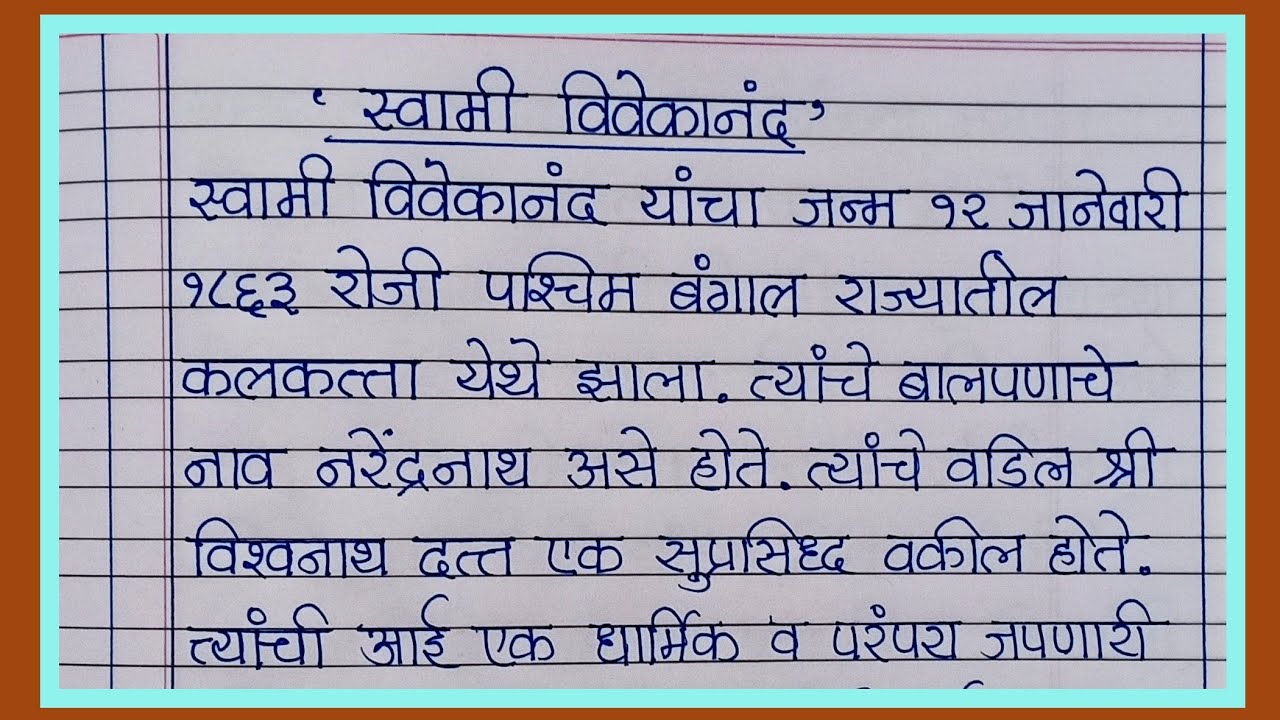 ‘ स्वामी विवेकानंद ’
स्वामी विवेकानंद यांचा जन्म १२ जानेवारी
१८६३ रोजी पश्चिम बंगाल राज्यातील
कलकत्ता येथे झाला. त्यांचे बालपणाचे
नाव नरेंद्रनाथ असे होते. त्यांचे वडिल श्री
विश्वनाथ दत्त एक सुप्रसिध्द वकील होते.
त्यांची आई एक धार्मिक व परंपरा जपणारी